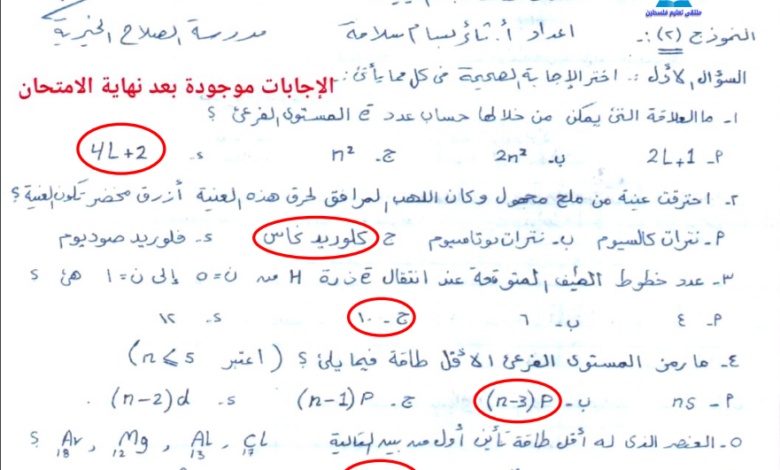 ملتقى تعليم فلسطين
النموذج (٢) :- اعداد أ. ثائر بسام سلامة مدرسة الصلاح الخيرية
السؤال الأول :. اختر الإجابة الصحيحة في كل مما يأتي :-
الإجابات موجودة بعد نهاية الامتحان
١- ما العلاقة التي يمكن من خلالها حساب عدد e المستوى الفرعي ؟
أ- 2L+1 ب- 2n² ج. n² د. 4L+2
٢- احترقت عينة من ملح مجهول وكان اللهب المرافق لحرق هذه العينة أزرق مخضر تكون العينة ؟
أ- نترات كالسيوم ب- نترات بوتاسيوم ج كلوريد نحاس د- فلوريد صوديوم
٣- عدد خطوط الطيف المتوقعة عند انتقال e ذرة H من ن=٥ إلى ن=١ هي ؟
أ- ٤ ب- ٦ ج- ١٠ د. ١٢
٤- ما رمز المستوى الفرعي الأقل طاقة فيما يلي ؟ ( اعتبر n ⩽ 5 )
أ- ns ب- (n-3)P ج- (n-1)P د. (n-2)d
٥- العنصر الذي له أقل طاقة تأين أول من بين التالية ₁₇CL ، ₁₃AL ، ₁₂Mg ، ₁₈Ar ؟